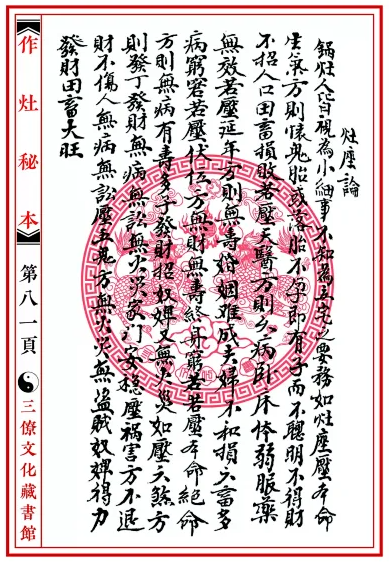 灶座論
鍋灶人皆視為小細事不知為立宅之要務如灶座壓本命
生氣方則懷鬼胎或落胎不孕即有子而不聰明不得財
不招人口田畜損敗若壓天醫方則久病卧床体弱服藥
無效若壓延年方則無壽婚姻難成夫婦不和損六畜多
病窮窘若壓伏位方無財無壽終身窮苦若壓本命絕命
方則無病有壽多子發財招奴婢又無火災如壓六煞方
則發丁發財無病無訟無火災家門安穩壓禍害方不退
財不傷人無病無訟壓五鬼方無火災無盜賊奴婢得力
發財田畜大旺
作灶秘本
第八一頁
三僚文化藏書館